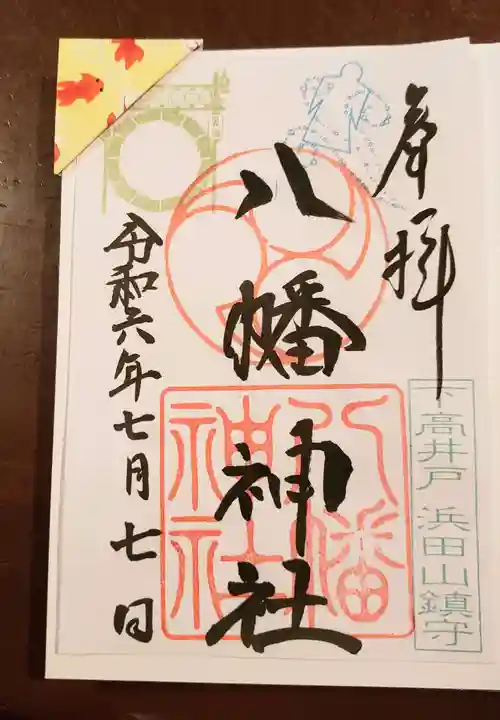 奉拝
下高井戸 浜田山鎮守
八幡神社
八幡
神社
令和六年七月七日